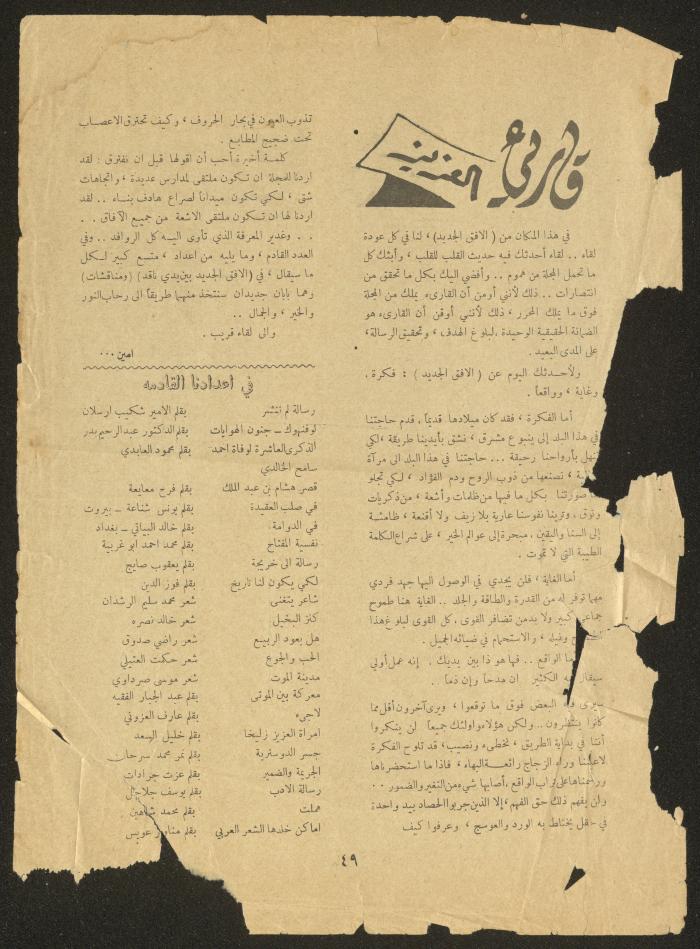 قارئي العزيز
في هذا المكان من ( الافق الجديد) ، لنا في كل عودة
لقاء .. لقاء أحدثك فيه حديث القلب للقلب ، وأبثك كل
ما تحمل المجلة من هموم .. وأفضي اليك بكل ما تحقق من
انتصارات .. ذلك لأنني أومن أن القارىء يملك من المجلة
فوق ما يملك المحرر ، ذلك لأنني أوقن أن القارىء هو
الضمانة الحقيقية الوحيدة ، لبلوغ الهدف ، وتحقيق الرسالة ،
على المدى البعيد .
ولأحدثك اليوم عن ( الافق الجديد ) : فكرة ،
وغاية ، وواقعاً .
أما الفكرة ، فقد كان ميلادها قديماً ، قدم حاجتنا
في هذا البلد إلى ينبوع مشرق ، نشق بأيدينا طريقه ، لكي
تنهل بأرواحنا رحيقه ... حاجتنا في هذا البلد الى مرآة
، نصنعها من ذوب الروح ودم الفؤاد ، لكي تجلو
صورتنا بكل ما فيها من ظلمات وأشعة ، من ذكريات
وتوق . وترينا نفوسنا عارية بلا زيف ولا أقنعة ، ظامئة
إلى السنا واليقين ، مبحرة إلى عوالم الخير ، على شراع الكلمة
الطيبة التي لا تموت .
أما الغاية ، فلن يجدي في الوصول اليها جهد فردي
مهما توفر له من القدرة والطاقة والجلد .. الغاية هنا طموح
جماعي كبير ولا بد من تضافر القوى ، كل القوى لبلوغ هذا
، والاستحمام في ضيائه الجميل .
ما الواقع .. فها هو ذا بين يديك . إنه عمل أولي
سيقال فيه الكثير إن مدحاً وإن ذماً ..
سيرى فيه البعض فوق ما توقعوا ، ويرى آخرون أقل مما
كانوا ينتظرون ... ولكن هؤلاء وأولئك جميعاً لن ينكروا
أننا في بداية الطريق ، نخطىء ونصيب ، قد تلوح الفكرة
لأعيننا وراء الزجاج رائعة البهاء ، فاذا ما استحضرناها
على تراب الواقع ، أصابها شيء من التغير والضمور ..
ولن يفهم ذلك حق الفهم ، إلا الذين جربوا الحصاد بيد واحدة
في حقل يختلط به الورد والعوسج ، وعرفوا كيف
تذوب العيون في بحار الحروف ، وكيف تحترق الاعصاب
تحت ضجيج المطابع .
كلمة أخيرة أحب أن اقولها قبل ان نفترق : لقد
اردنا للمجلة ان تكون ملتقى لمدارس عديدة ، واتجاهات
شتى ، لكي تكون ميداناً لصراع هادف بناء .. لقد
اردنا لها ان تكون ملتقى الاشعة من جميع الآفاق ..
.. وغدير المعرفة الذي تأوى اليه كل الروافد .. وفي
العدد القادم ، وما يليه من اعداد ، متسع كبير لكل
ما سيقال ، في (الافق الجديد بين يدي ناقد) (ومناقشات)
وهما بابان جديدان سنتخذ منهما طريقاً الى رحاب النور
والخير ، والجمال ..
والى لقاء قريب .
امين ...
في اعدادنا القادمه
رسالة لم تنشر بقلم الامير شكيب ارسلان
لوفنهوك ــ جنون الهوايات بقلم الدكتور عبد الرحيم بدر
الذكرى العاشرة لوفاة احمد بقلم محمود العابدي
سامح الخالدي
قصر هشام بن عبد الملك بقلم فرج معايعة
في صلب العقيدة بقلم يونس شناعة ــ بيروت
في الدوامة بقلم خالد البياتي ــ بغداد
نفسية المفتاح بقلم محمد احمد ابو غربية
رسالة الى خريجة بقلم يعقوب صايج
لكي يكون لنا تاريخ بقلم فوز الدين
شاعر يتغنى شعر محمد سليم الرشدان
كنز البخيل شعر خالد نصره
هل يعود الربيع شعر راضي صدوق
الحب والجوع شعر حكمت العتيلي
مدينة الموت شعر موسى صرداوي
معركة بين الموتى بقلم عبد الجبار الفقيه
لاجىء بقلم عارف العزوني
امرأة العزيز زليخا بقلم خليل السعد
جسر الدوستريه بقلم نمر محمد سرحان
الجريمة والضمير بقلم عزت جرادات
رسالة الادب بقلم يوسف جلاجل
هملت بقلم محمد شاهين
اماكن خلدها الشعر العربي بقلم مناور عويس
٤٩